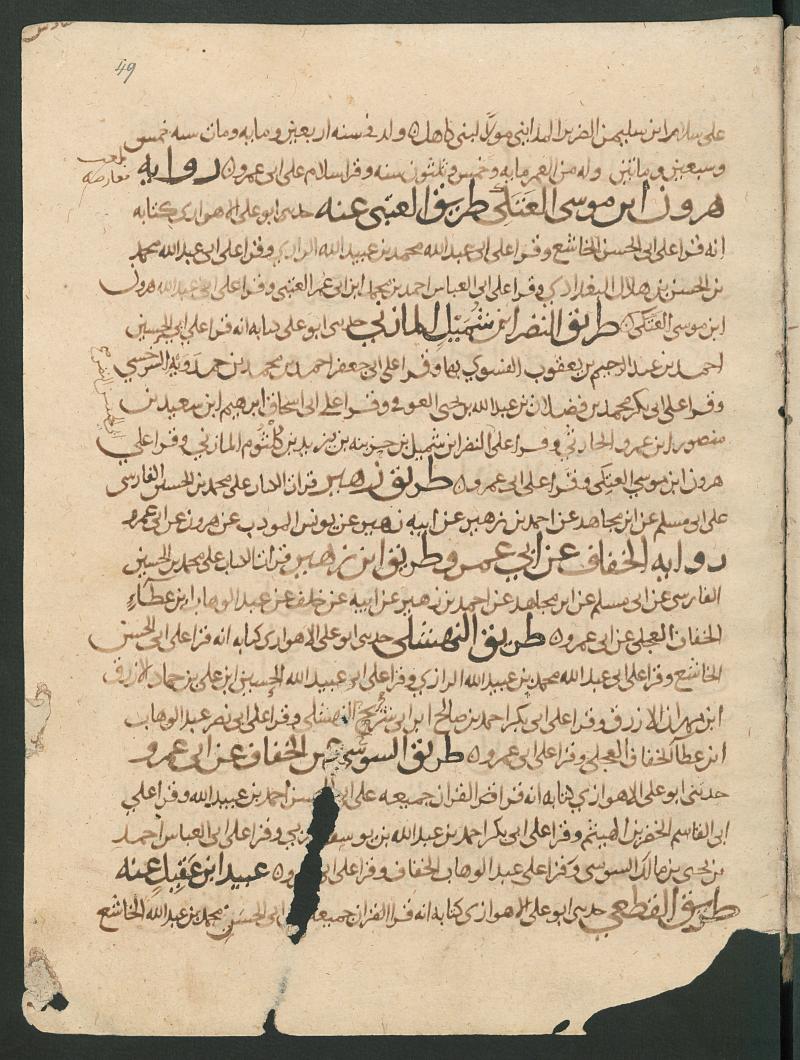 49
على سلام ابن سليمن الضرير المدايني مولا لبني كاهل ه ولد في سنه اربعين ومايه ومات سنه خمس
وسبعين وماتين وله من العمر مايه وخمس وثلثون سنه وقرا سلام على ابي عمرو ه روايه
بلغت
معارضه
هرون ابن موسى العتكي طريق العتبي عنه حدثني ابو علي الاهوازي كتابه
انه قرا على ابي الحسن الخاشع وقرا على ابي عبد الله محمد بن عبيد الله الرازي وقرا على ابي عبد الله محمد
بن الحسن بن هلال البغدادي وقرا على ابي العباس احمد بن محمد ابن ابي عمر العتبي وقرا على ابي عبد الله هرون
ابن موسى العتكي ه طريق النضر ابن شميل المازني حدثني ابو علي كتابه انه قرا على ابي الحسين
احمد بن عبد الرحيم بن يعقوب الفسوي بها وقرا على ابي جعفر احمد بن محمد بن حمدويه السرخسي
وقرا على ابي بكر محمد بن فضلان بن عبد الله بن يحيى العوفي وقرا على ابي اسحاق ابرهيم ابن سعيد بن
منصور ابن عمرو الحارثي وقرا على النضر ابن شميل بن خرشه بن يزيد بن كلثوم المازني وقرا على
هرون ابن موسى العتكي وقرا على ابي عمرو ه طريق زهير قرات القران على محمد بن الحسين الفارسي
على ابي مسلم عن ابن مجاهد عن احمد بن زهير عن ابيه زهير عن يونس المودب عن هرون عن ابي عمرو
روايه الخفاف عن ابي عمرو طريق ابن زهير قرات القران على محمد بن الحسين
الفارسي عن ابي مسلم عن ابن مجاهد عن احمد بن زهير عن ابيه عن خلف عن عبد الوهاب ابن عطآء
الخفاف العجلي عن ابي عمرو ه طريق النهشلي حدثني ابو علي الاهوازي كتابه انه قرا على ابي الحسن
الخاشع وقرا على ابي عبد الله محمد بن عبيد الله الرازي وقرا على ابي عبيد الله الحسين ابن علي بن حماد الازرق
ابن مهران الازرق وقرا على ابي بكر احمد بن صالح ابن ابي سريج النهشلي وقرا على ابي نصر عبد الوهاب
ابن عطآ الخفاف العجلي وقرا على ابي عمرو ه طريق السوسي عن الخفاف عن ابي عمرو
حدثني ابو علي الاهوازي كتابه انه قرا ض القران جميعه على ابي الحسن احمد بن عبيد الله وقرا على
ابي القاسم الخضر بن الهيثم وقرا على ابي بكر احمد بن عبد الله بن يوسف وقرا على ابي العباس احمد
بن يحيى بن مالك السوسي وقرا على عبد الوهاب الخفاف وقرا على ابي عمرو ه عبيد ابن عقيل عنه
طريق القطعي حدثني ابو علي الاهوازي كتابه انه قرا القران جميعه ابي الحسن محمد بن عبد الله الخاشع